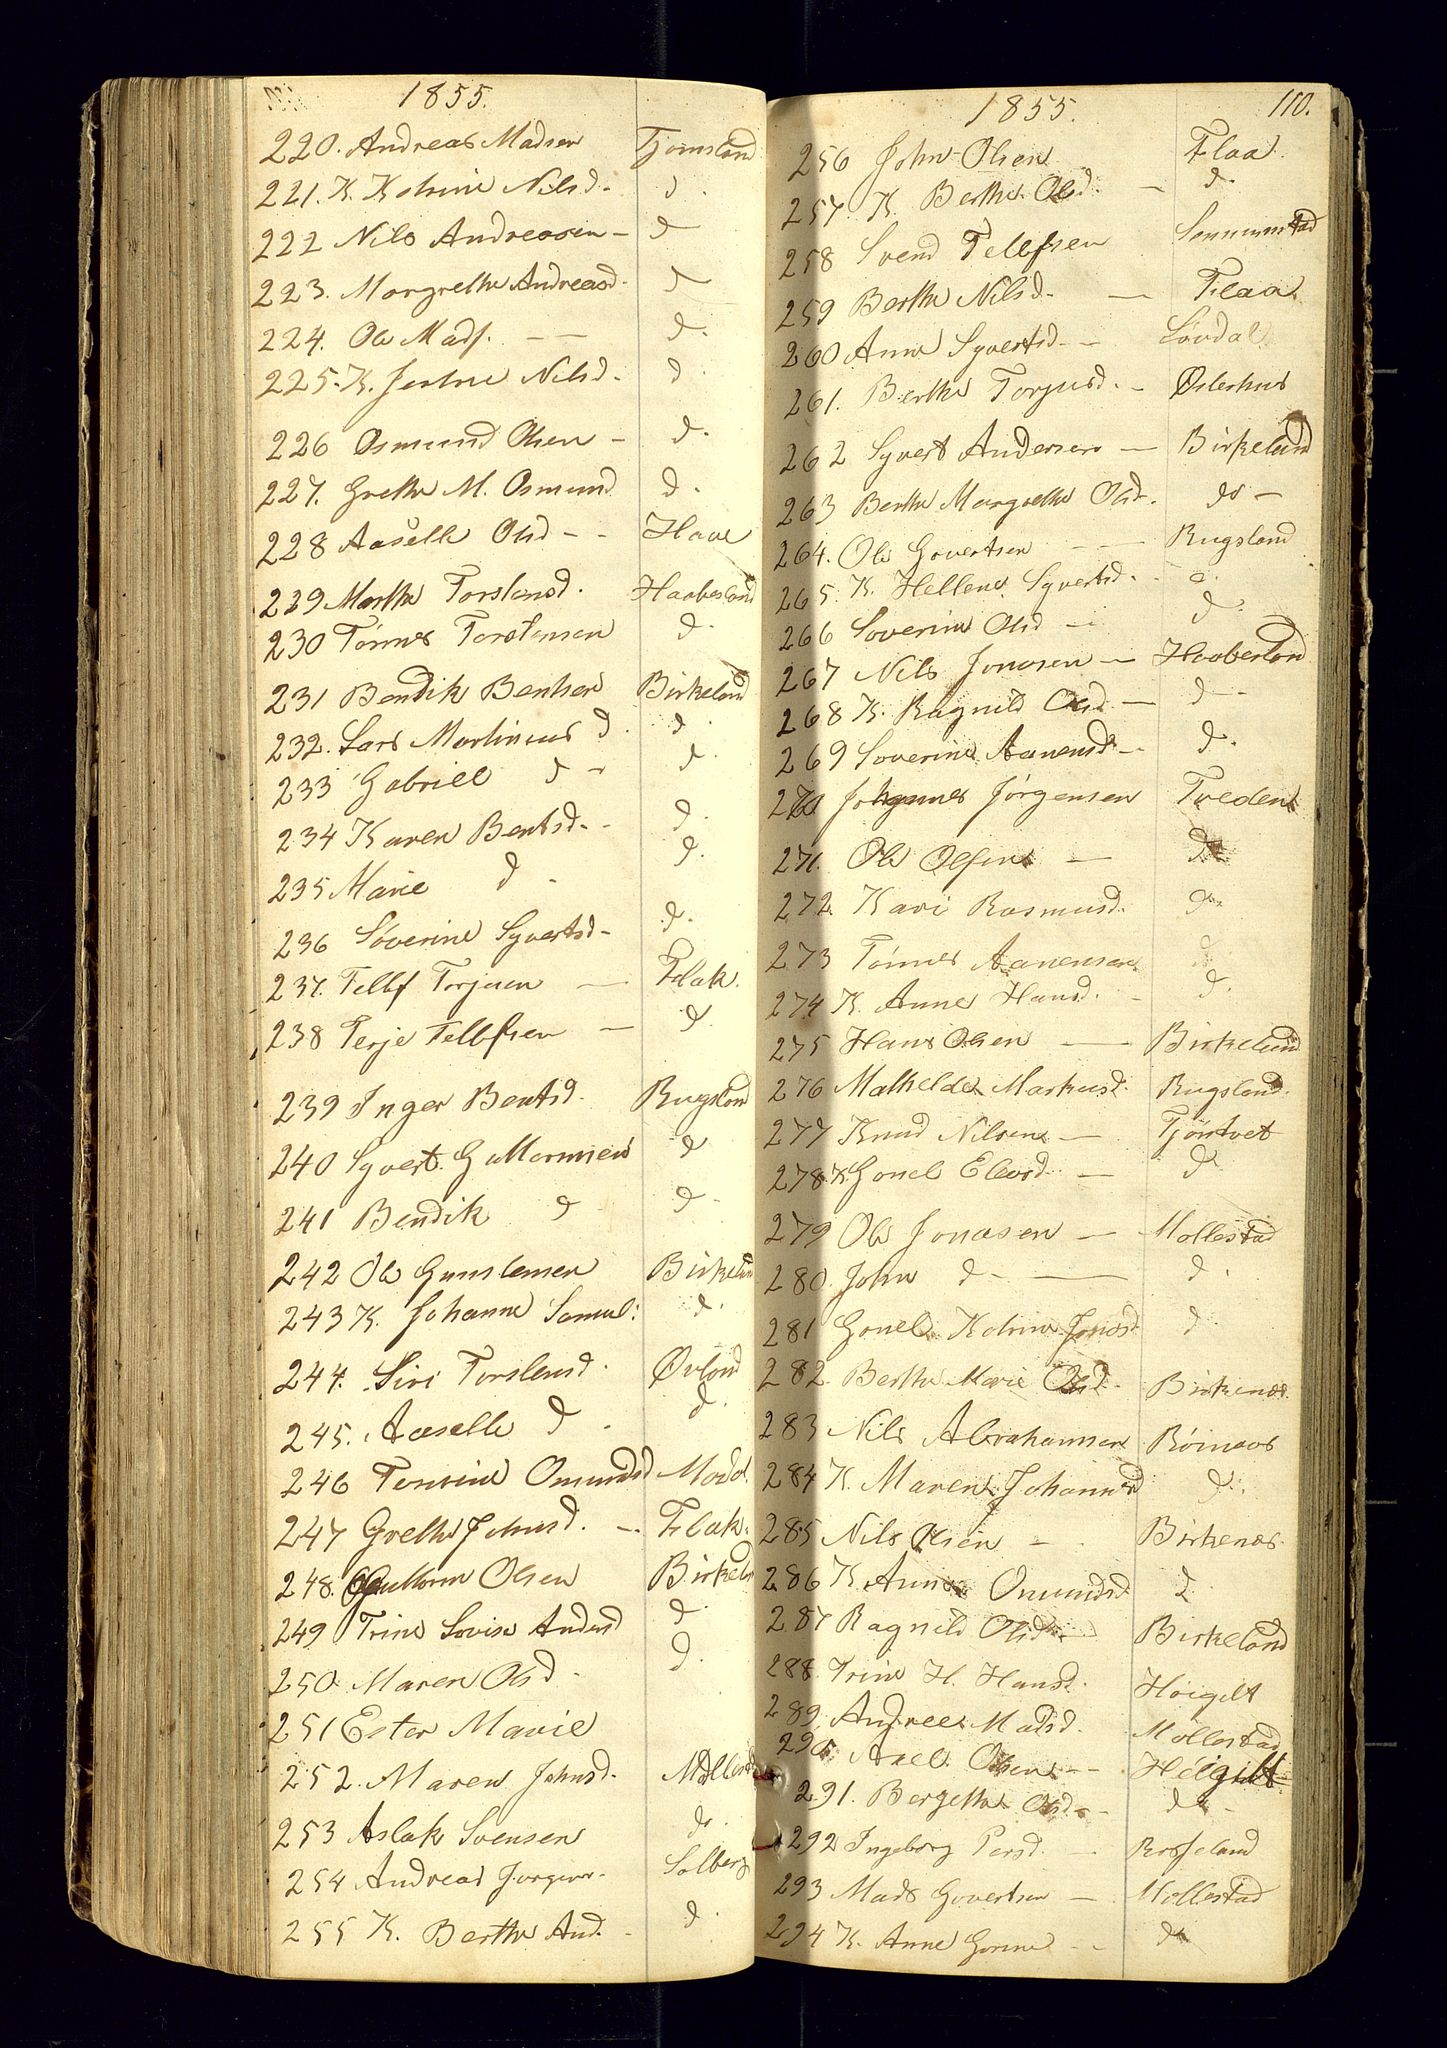 1855.
220. Andreas Madsen Tjomsland
221. K. Katrine Nilsd. d.
222 Nils Andreassen – d
223. Margrethe Andreasd. d
224. Ole Mads. – – d.
225. K. Jertru Nilsd. d.
226 Osmund Olsen – d.
227. Grethe M. Osmund d.
228 Aaselle Olsd – – Haae
229 Marthe Torstensd. Haabesland
230 Tönnes Torstensen d.
231 Bendik Bentsen Birkeland
232. Lars Martinius d. d.
233 Gabriell d – d.
234 Karen Bentsd. – d.
235 Marie d – d.
236 Söverine Syvertsd – d.
237. Tellf Torjusen – Flak.
238 Terje Tellefsen – d.
239 Inger Bentsd. Rugsland
240 Syvert Guttormsen d
241 Bendik d d –
242 Ole Gunstensen Birkeland
243 K. Johanne Samuel: d.
244. Siri Torstensd. Övland
245. Aaselle d. d.
246 Tomine Omundsd Modal
247 Grethe Johnsd. – Flak.
248. Guttorm Olsen Birkeln
249 Trine Lovise Andersd d.
250. Maren Olsd – d.
251 Ester Marie
252. Maren Johnsd. Mollestad
253 Aslak Svensen d.
254 Andreas Jorgens. Solberg
255 K. Berthe And. – d.
1855. 110.
256 John Olsen Flaa.
257. K. Berthe Olsd. – d.
258 Svend Tellefsen
259 Berthe Nilsd. – Flaa.
260 Anne Syvertsd – – Lövdal
261. Berthe Torjusd. – Osterhus
262 Syvert Andersen – Birkeland
263 Berthe Margrethe Olsd. do –
264. Ole Govertsen – – Rugsland
265. K. Hellene Syvertsd. – d.
266 Soverine Olsd – d.
267 Nils Jonasen – Haabesland
268 K. Ragnild Olsd – d –
269 Soverine Aanensd – d.
270 Johannes Jörgensen Tvedene
271. Ole Olsens – do
272. Kari Rasmusd. do.
273 Tönnes Aanensen d
274 K. Anne Hansd. – d.
275 Hans Olsen – Birkeland
276 Mathelde Markusd. Rugsland.
277 Knud Nilsen – Tjöntvet
278. K. Gonel Elevsd. – d
279 Ole Jonasen – Mollestad
280. John d – – d.
281 Gonel Katrine Jonasd. d.
282. Berthe Marie Olsd. Birkenes.
283 Nils Abrahamsen
284 K. Maren Johannsd d.
285 Nils Olsen – Birkenes.
286 K. Anne Omundsd. d
287 Ragnild Olsd. – Birkeland
288. Trine H. Hansd. Hoigilt
289. Andreas Madsd. Mollestad
290. Axel Olsen – – Höigilt
291. Bergethe Olsd. – do –
292 Ingeborg Persd. – Rosseland
293 Mads Govertsen – Mollestad
294 K. Anne Gonne – – do